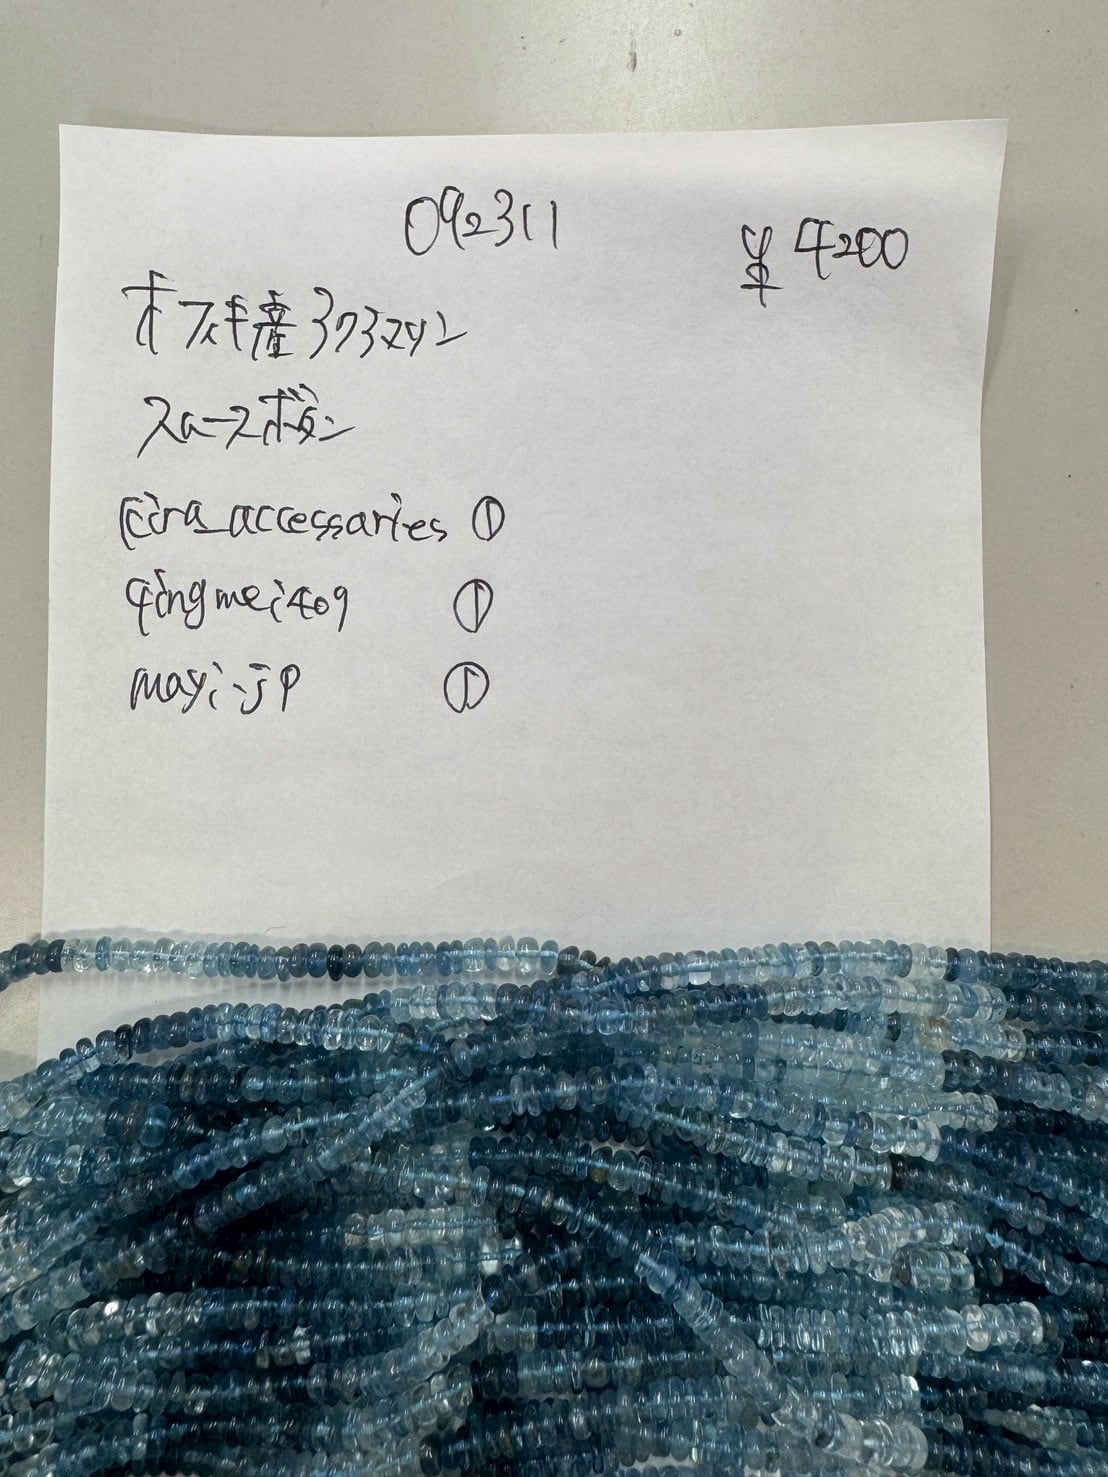 092311
¥4200
オフィキ産アクアマリン
スムースボタン
kira_accessaries ①
qingmei409 ①
mayi-jp ①